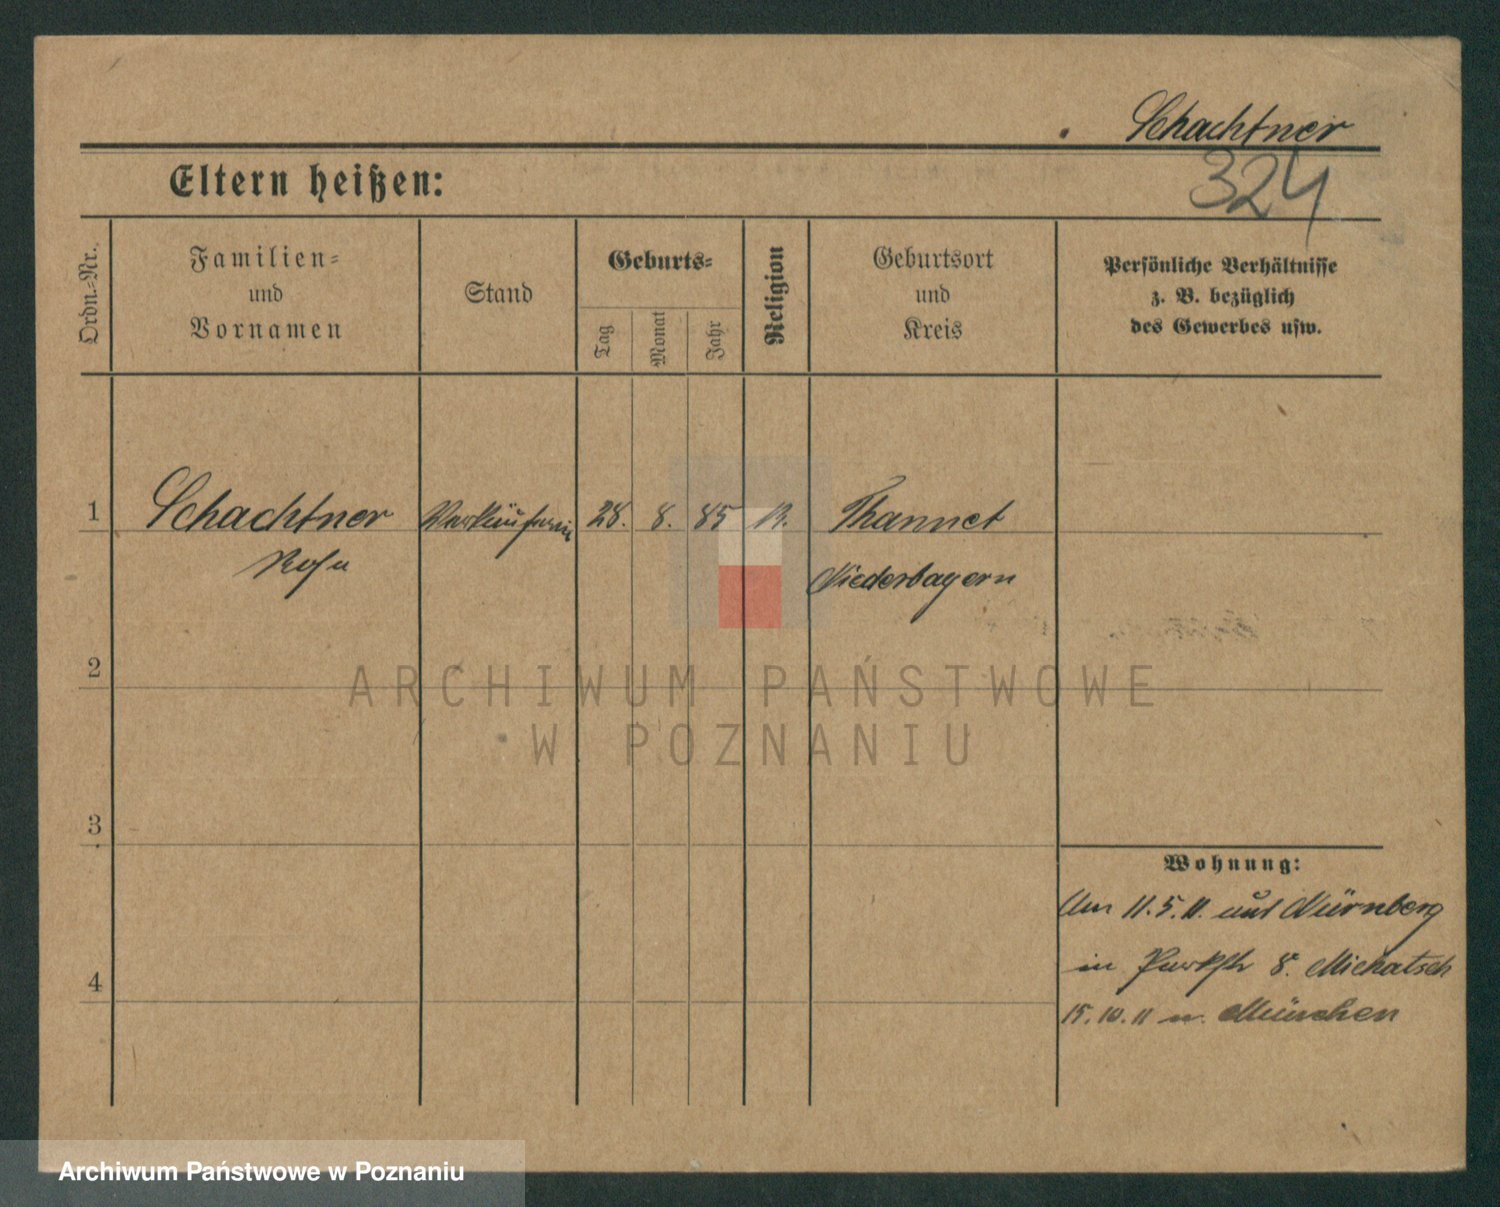 Schachtner
324
Eltern heißen:
Ordn.-Nr.
Familien-
und
Vornamen
Stand
Geburts-
Tag
Monat
Jahr
Religion
Geburtsort
und
Kreis
Persönliche Verhältnisse
z. B. bezüglich
des Gewerbes usw.
1 Schachtner Verkäuferin 28. 8. 85 K. Thannet
Rosa Niederbayern
2
3
4
Wohnung:
Am 11.5.11. aus Nürnberg
in Parkstr 8. Michatsch
15.10.11 n. München
ARCHIWUM PAŃSTWOWE
W POZNANIU
Archiwum Państwowe w Poznaniu